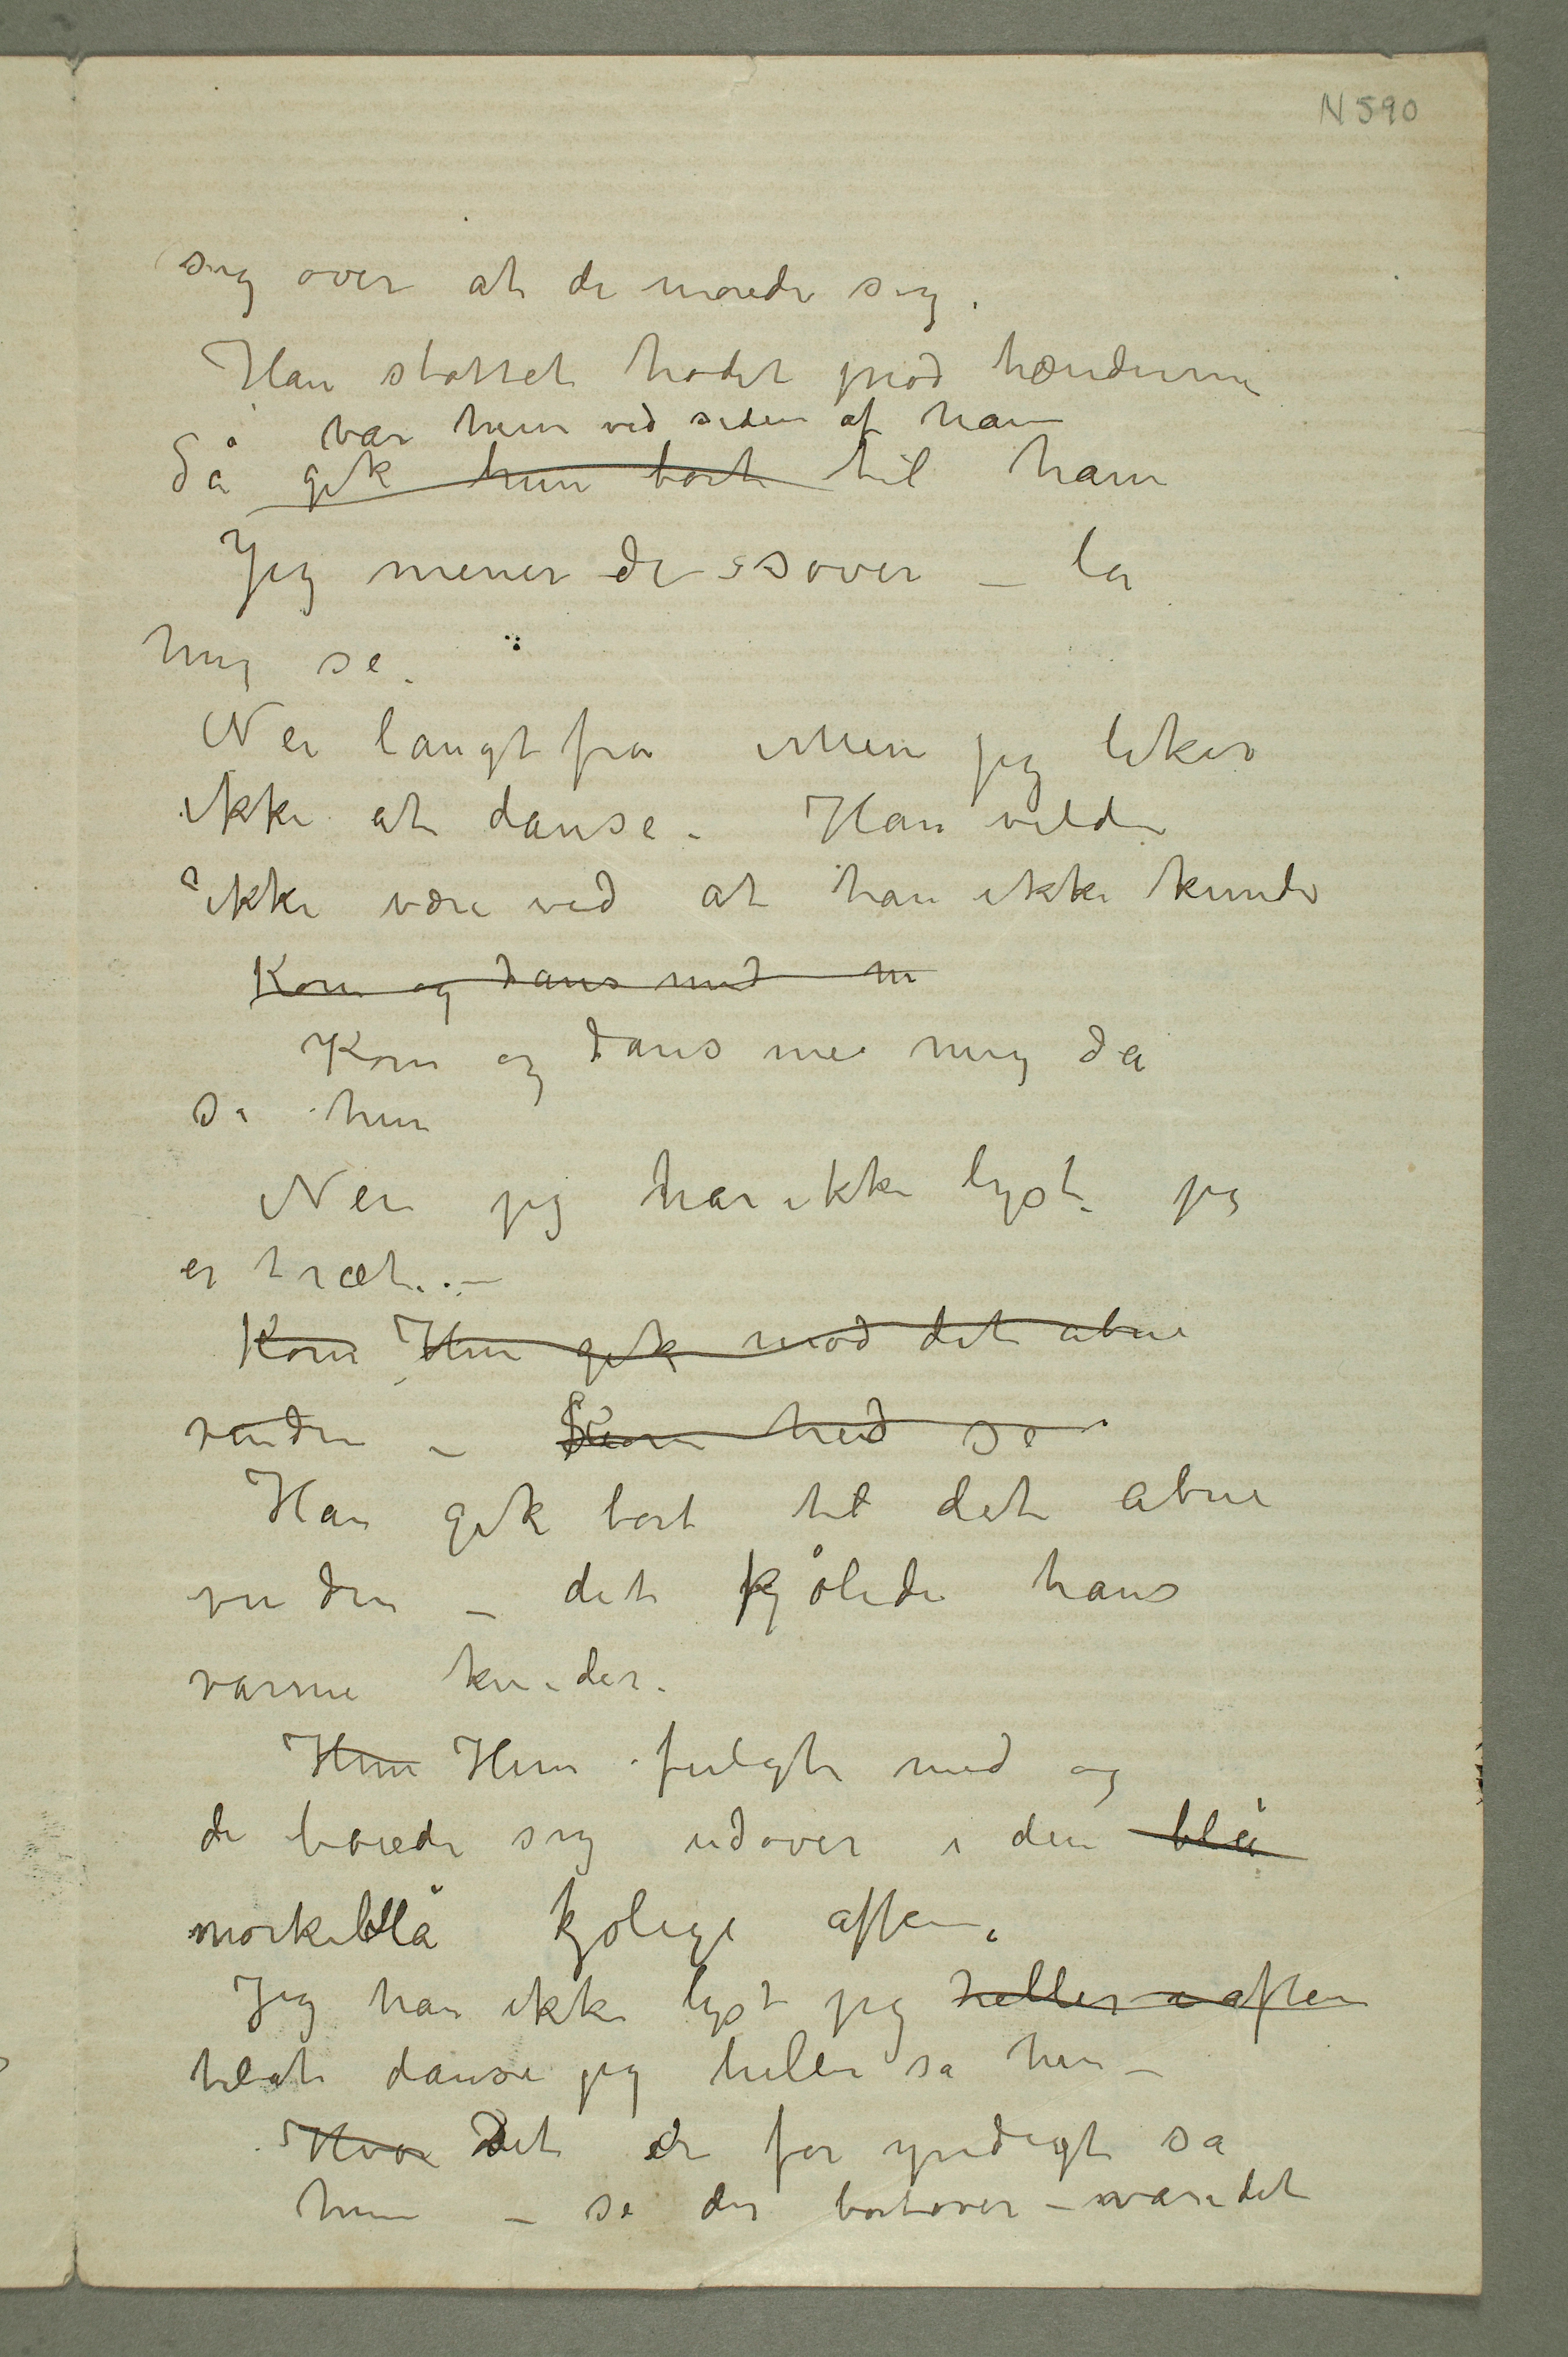 N 590
sig over at de morede sig.
Han støttet hodet mod hænderne
var hun ved siden af ham
Så gik hun bort til ham
Jeg mener De sover – la
mig se.
Nei langtfra Men jeg liker
ikke at danse. Han vilde
ikke være ved at han ikke kunde
Kom og dans med m
Kom og dans me mig da
sa hun
Nei jeg har ikke lyst. jeg
er træt. –
Kom Hun gik mod det åbne
vindu – hed so
Han gik bort til det åbne
vindu – det kjølede hans
varme kinder.
Hun Hun fulgte med og
de bøiede sig udover i den blå
mørkeblå kjølige aften.
Jeg har ikke lyst jeg heller i aften
til at danse jeg heller sa hun –
Hvor Det er for yndigt sa
hun – se der bortover – vandet